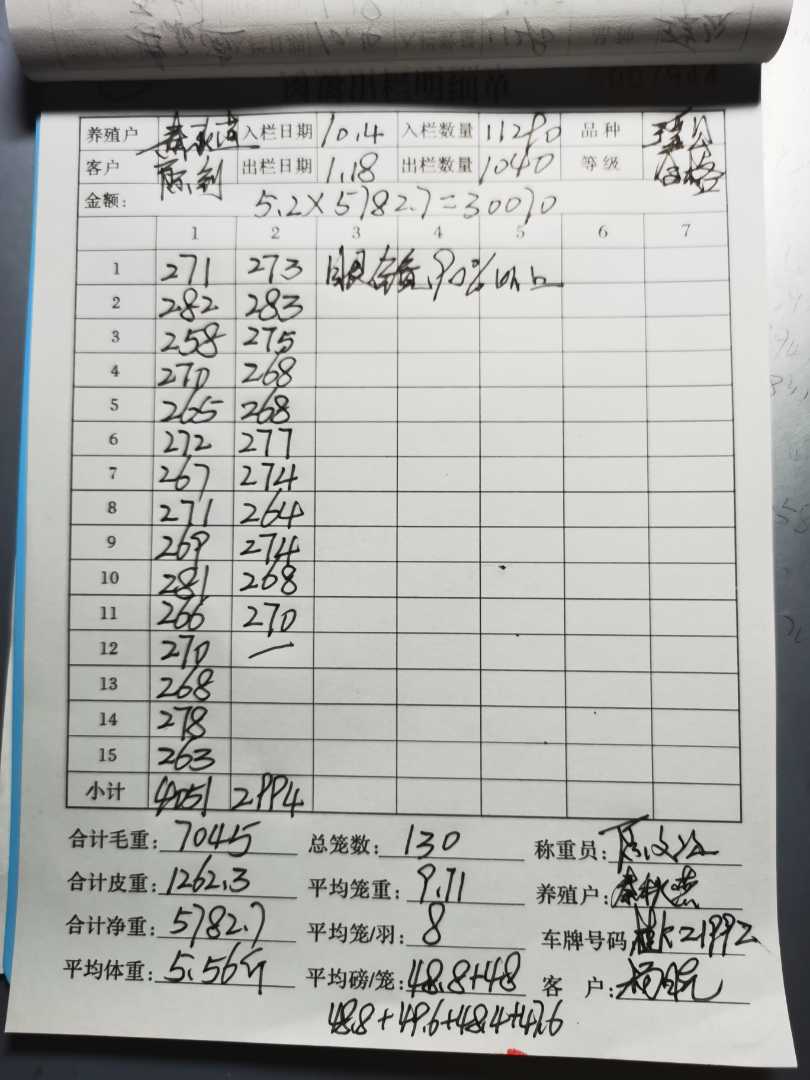 肉鸡出栏明细单
养殖户 入栏日期 10.4 入栏数量 11290 品种
客户 陈剑 出栏日期 1.18 出栏数量 1040 等级
金额: 5.2×5782.7=30070
1 2 3 4 5 6 7
1 271 273 90%以上
2 282 283
3 258 275
4 270 268
5 265 268
6 272 277
7 267 274
8 271 264
9 269 274
10 281 268
11 266 270
12 270 —
13 268
14 278
15 263
小计 4051 2994
合计毛重: 7045 总笼数: 130 称重员:
合计皮重: 1262.3 平均笼重: 9.71 养殖户:
合计净重: 5782.7 平均笼/羽: 8 车牌号码
平均体重: 5.56斤 平均磅/笼: 48.8+48 客 户:
48.8+49.6+48.4+47.6